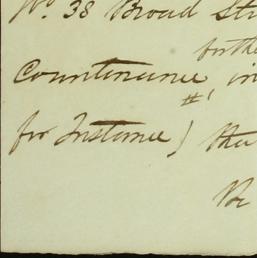 No. 38 Broad Str
for the
Countenance, in
#
for Instance) tha